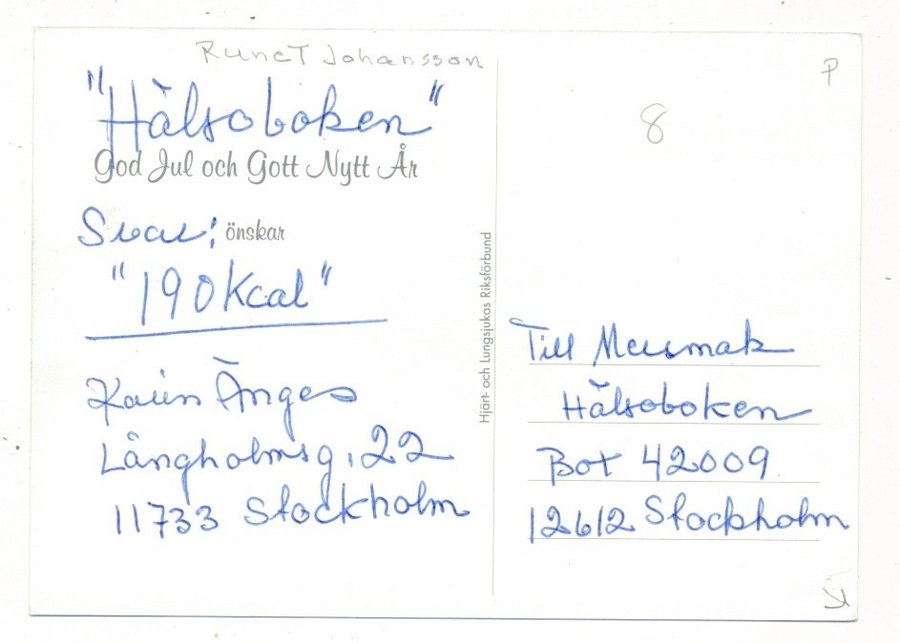 Rune T Johansson
P
8
"Hälsoboken"
God Jul och Gott Nytt År
Svar: önskar
"190 Kcal"
Karin Änges
Långholmsg. 22
11733 Stockholm
Hjärt- och Lungsjukas Riksförbund
Till Mersmak
Hälsoboken
Box 42009
12612 Stockholm